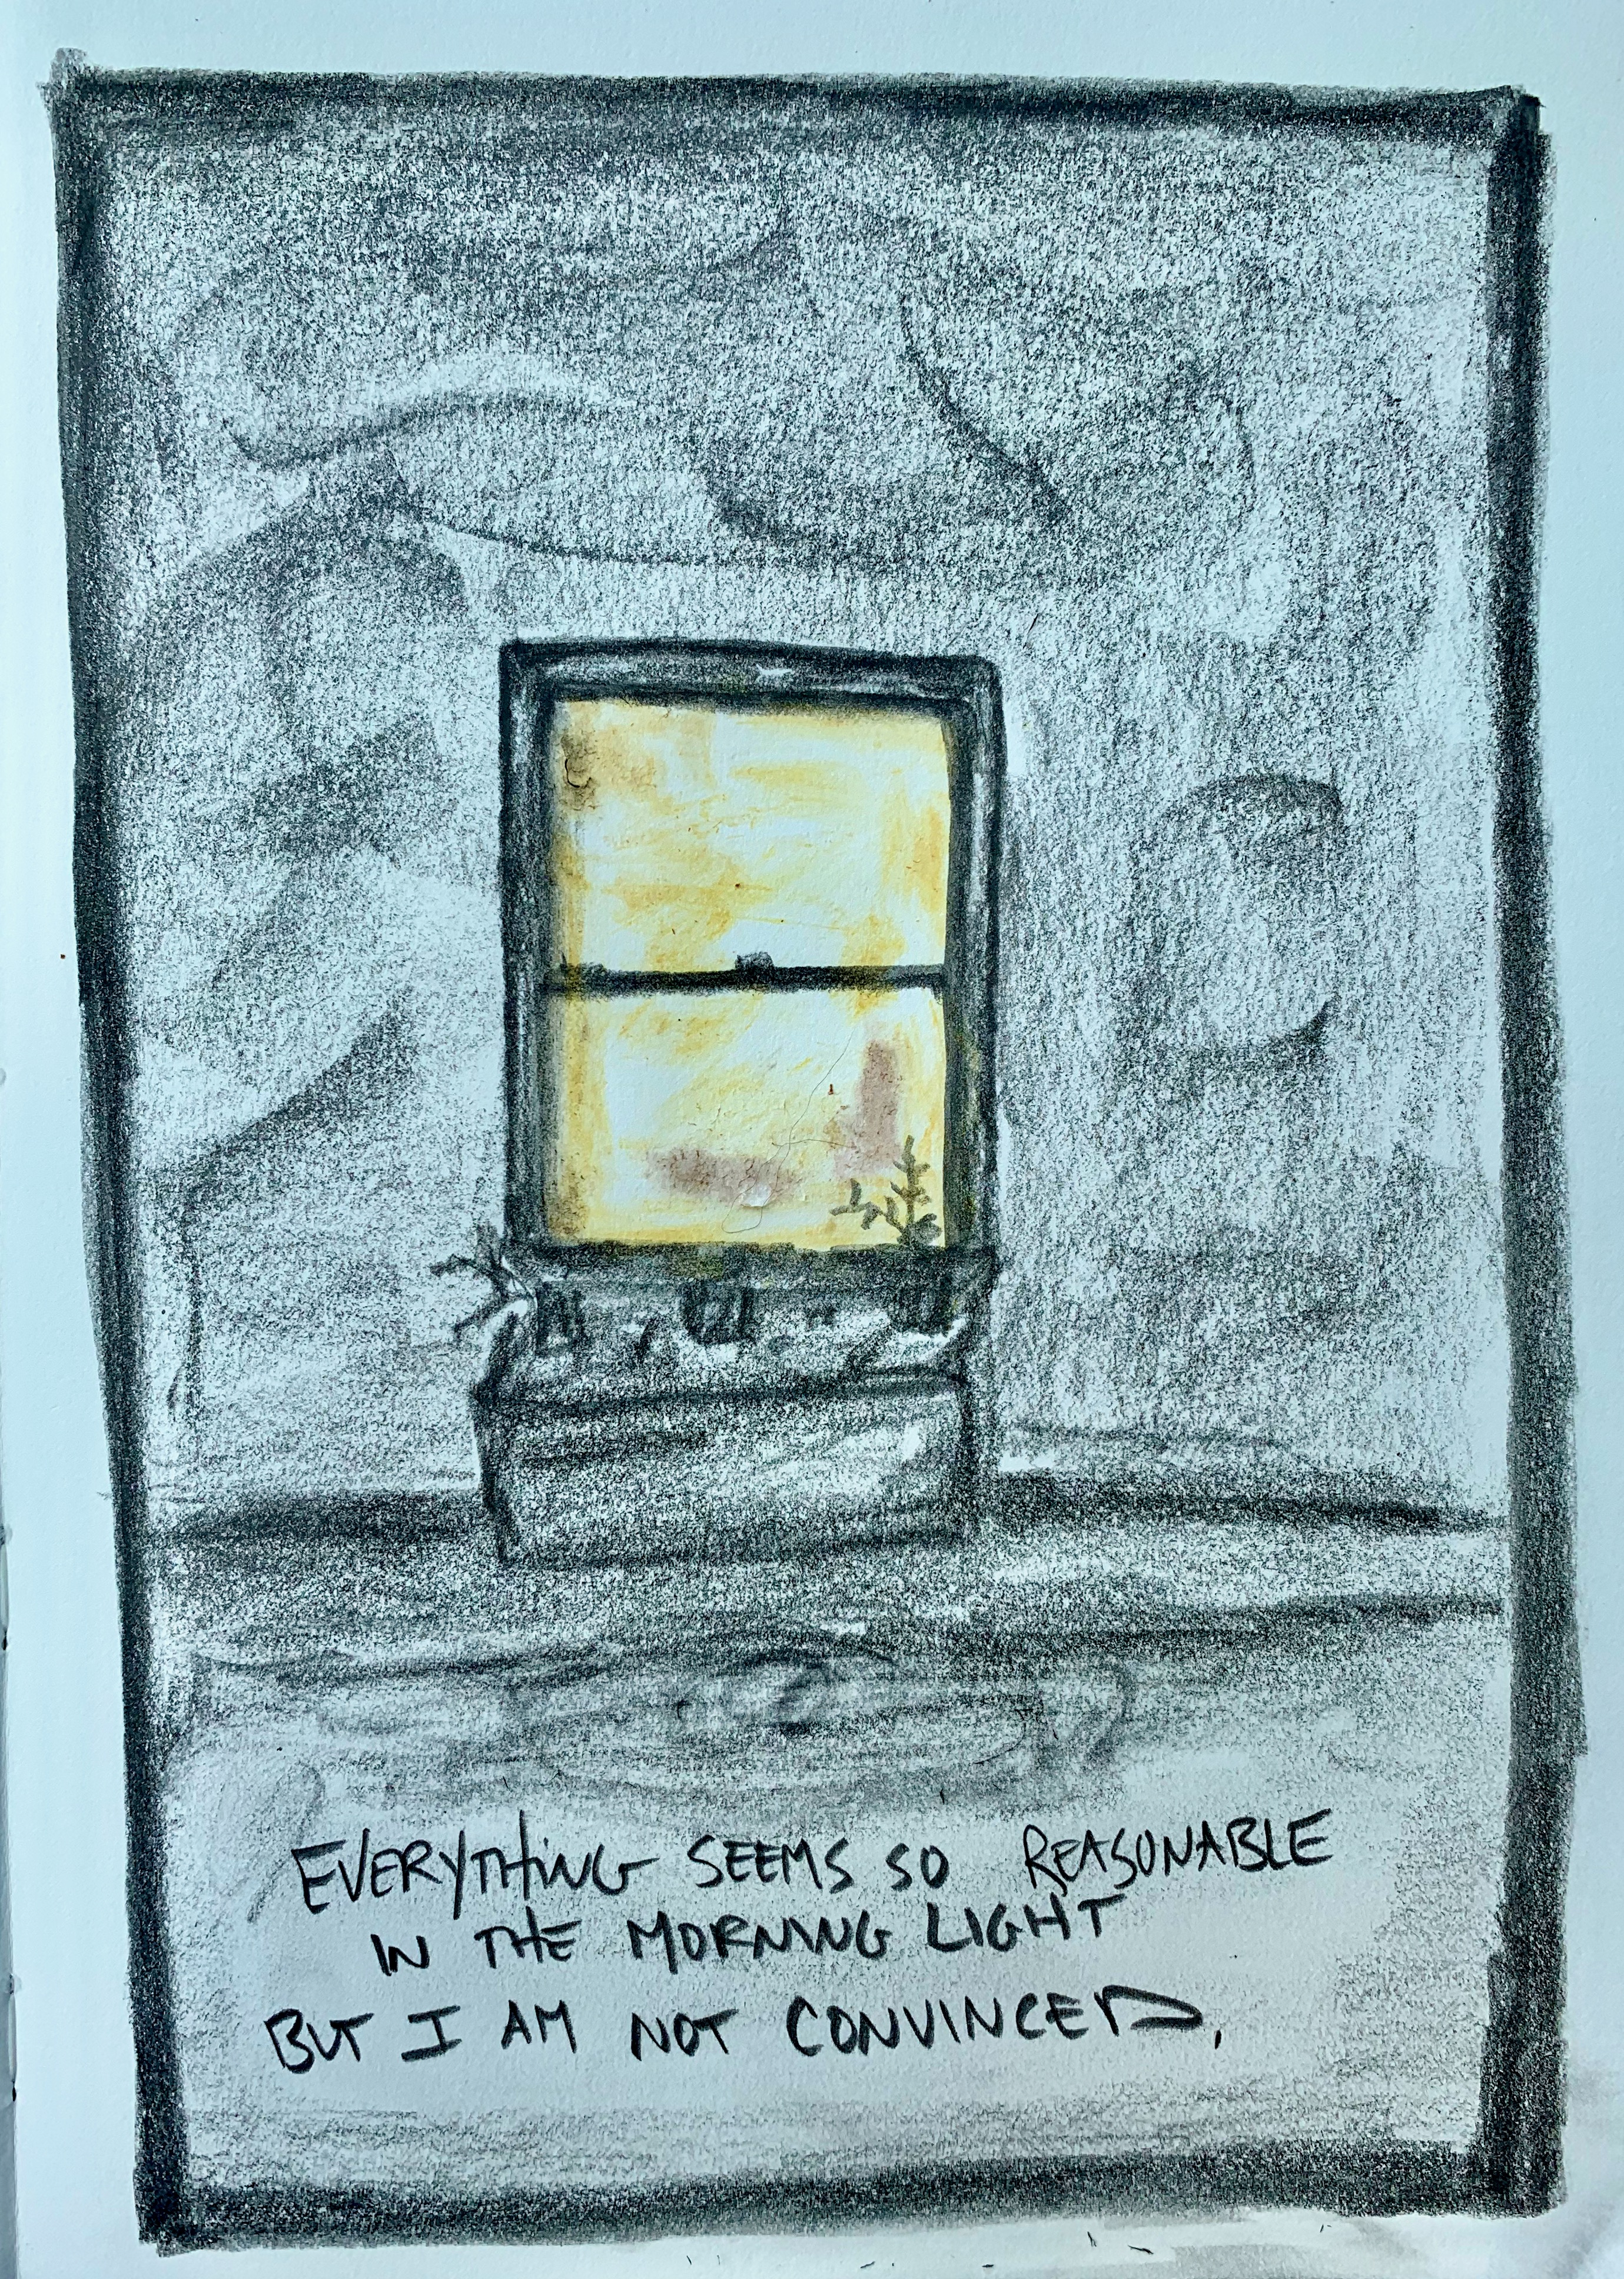 EVERYTHING SEEMS SO REASONABLE
IN THE MORNING LIGHT
BUT I AM NOT CONVINCED.